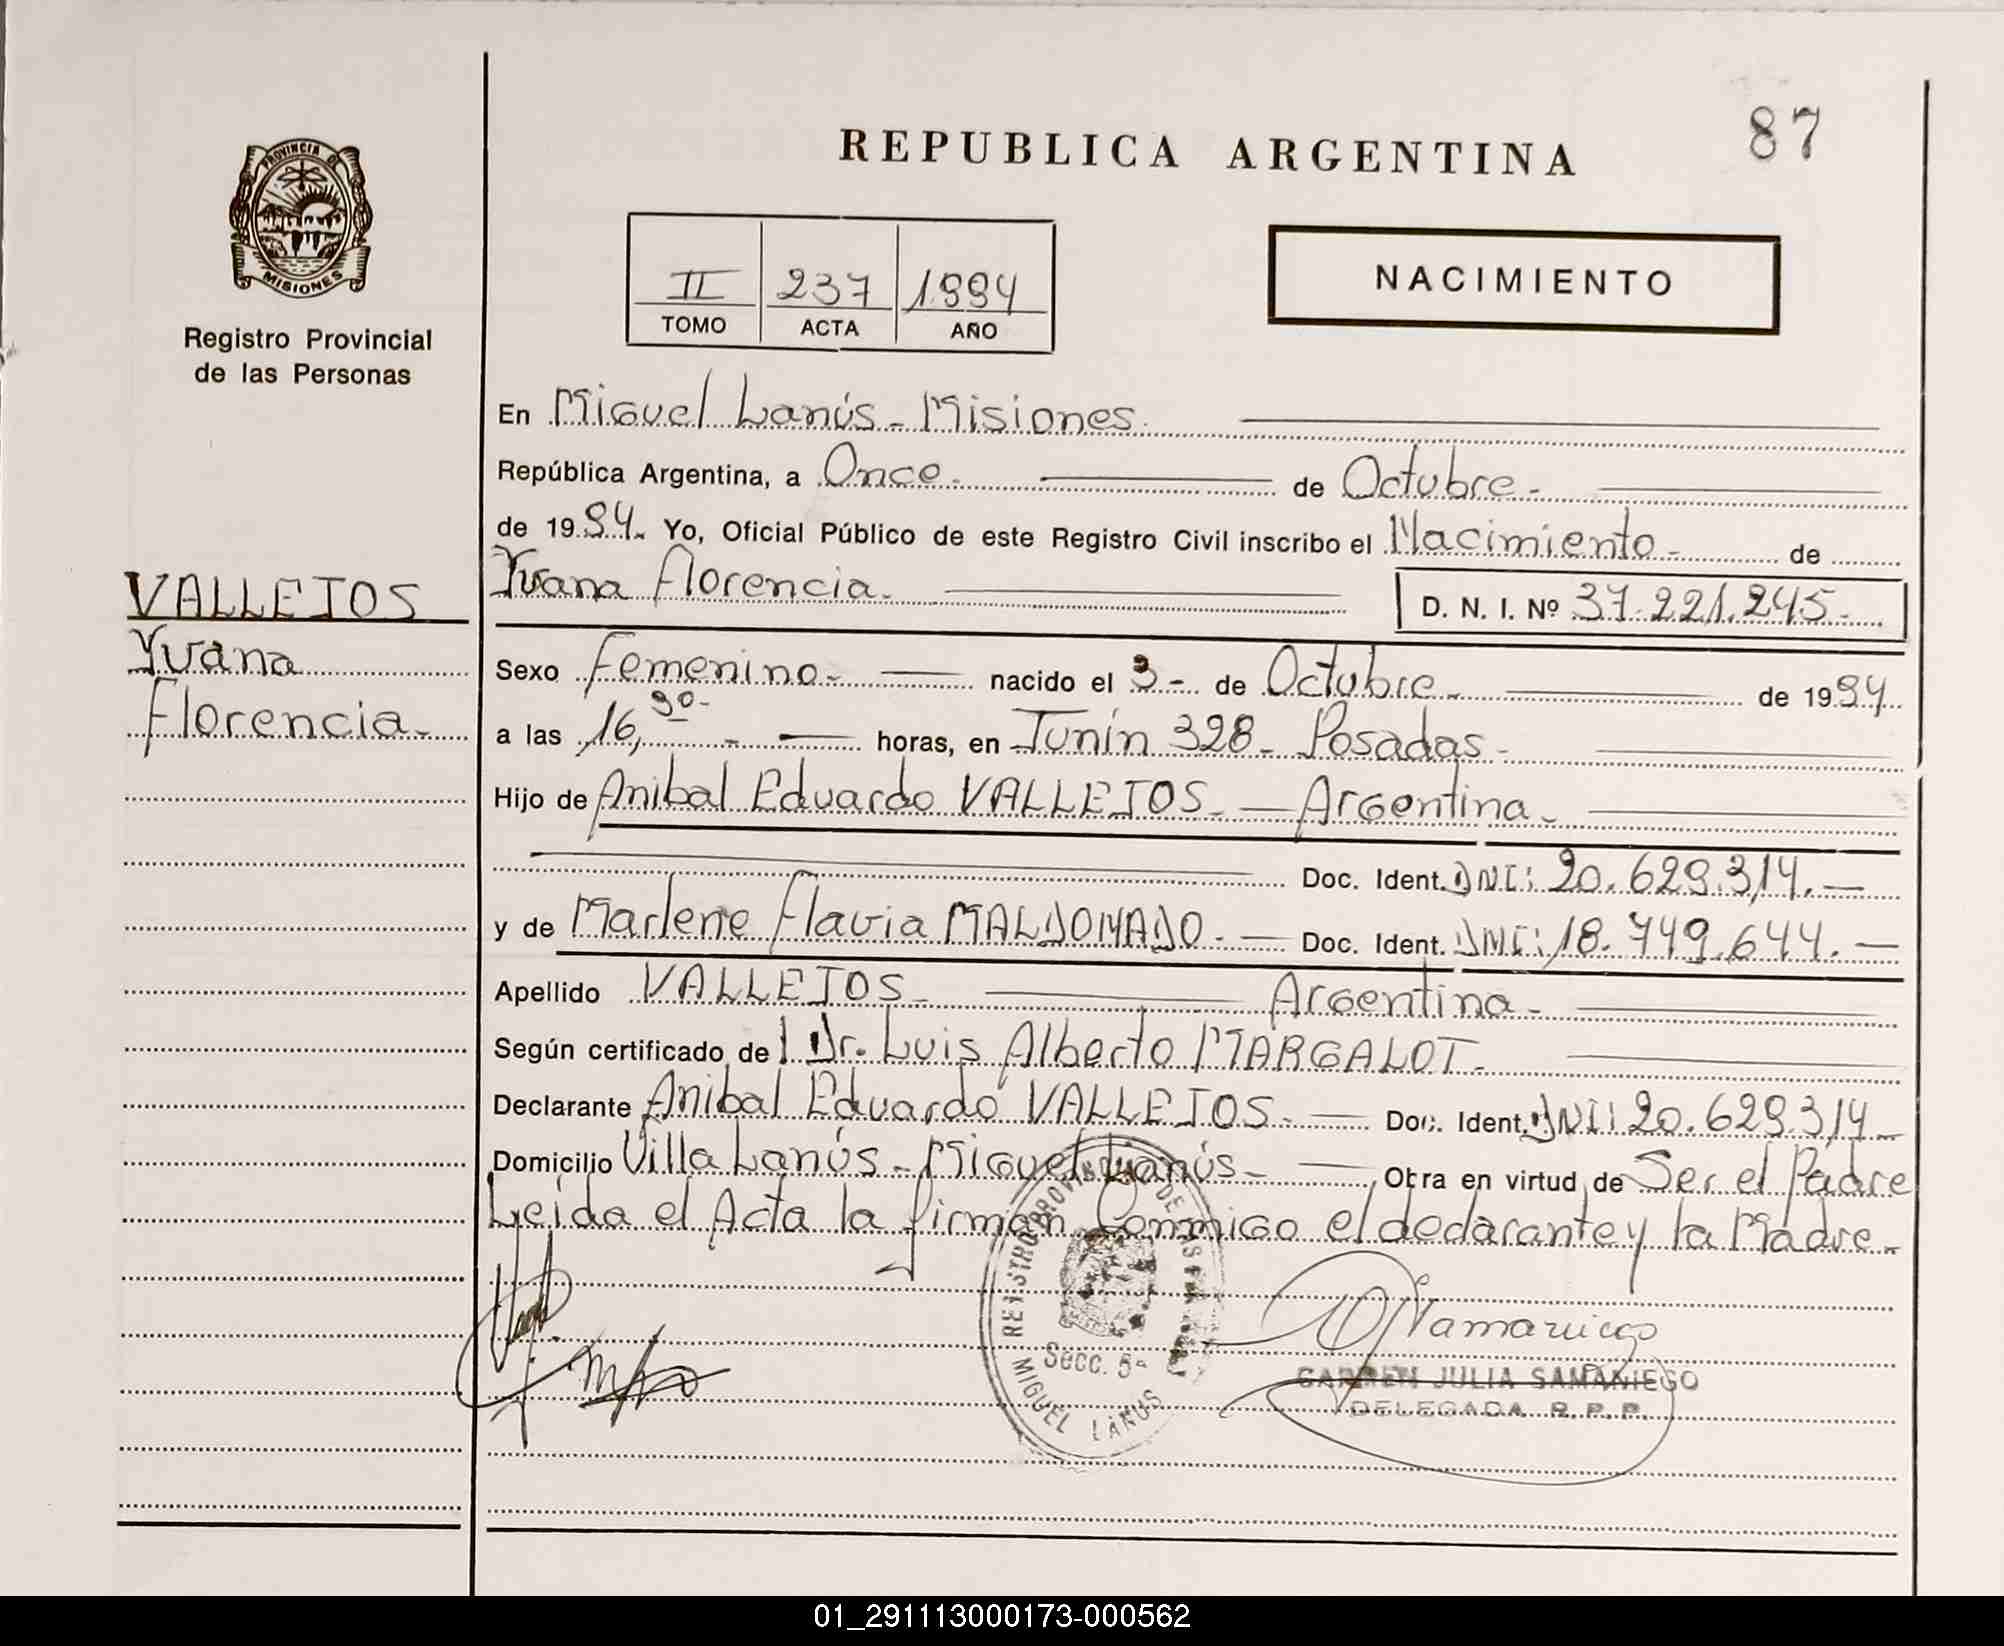 87
REPUBLICA ARGENTINA
PROVINCIA DE
MISIONES
Registro Provincial
de las Personas
II 237 1994
TOMO ACTA AÑO
NACIMIENTO
En Miguel Lanús - Misiones.
República Argentina, a Once - de Octubre -
de 1994. Yo, Oficial Público de este Registro Civil inscribo el Nacimiento - de
Yvana Florencia. D. N. I. Nº 37.221.245.-
VALLEJOS
Yvana
Florencia.-
Sexo Femenino - nacido el 3 - de Octubre - de 1994
a las 16,30 - horas, en Junín 328 - Posadas -
Hijo de Anibal Eduardo VALLEJOS - Argentina -
Doc. Ident. DNI: 20.629.314.-
y de Marlene Flavia MALDONADO - Doc. Ident. DNI: 18.749.644.-
Apellido VALLEJOS - Argentina -
Según certificado de l Dr. Luis Alberto MARGALOT -
Declarante Anibal Eduardo VALLEJOS - Doc. Ident. DNI: 20.629.314 -
Domicilio Villa Lanús - Miguel Lanús - Obra en virtud de Ser el Padre
Leida el Acta la firman Conmigo el declarante y la Madre -
REGISTRO PROVINCIAL DE LAS
Secc. 5ª
MIGUEL LANUS
Samaniego
CARMEN JULIA SAMANIEGO
DELEGADA R.P.P.
01_291113000173-000562